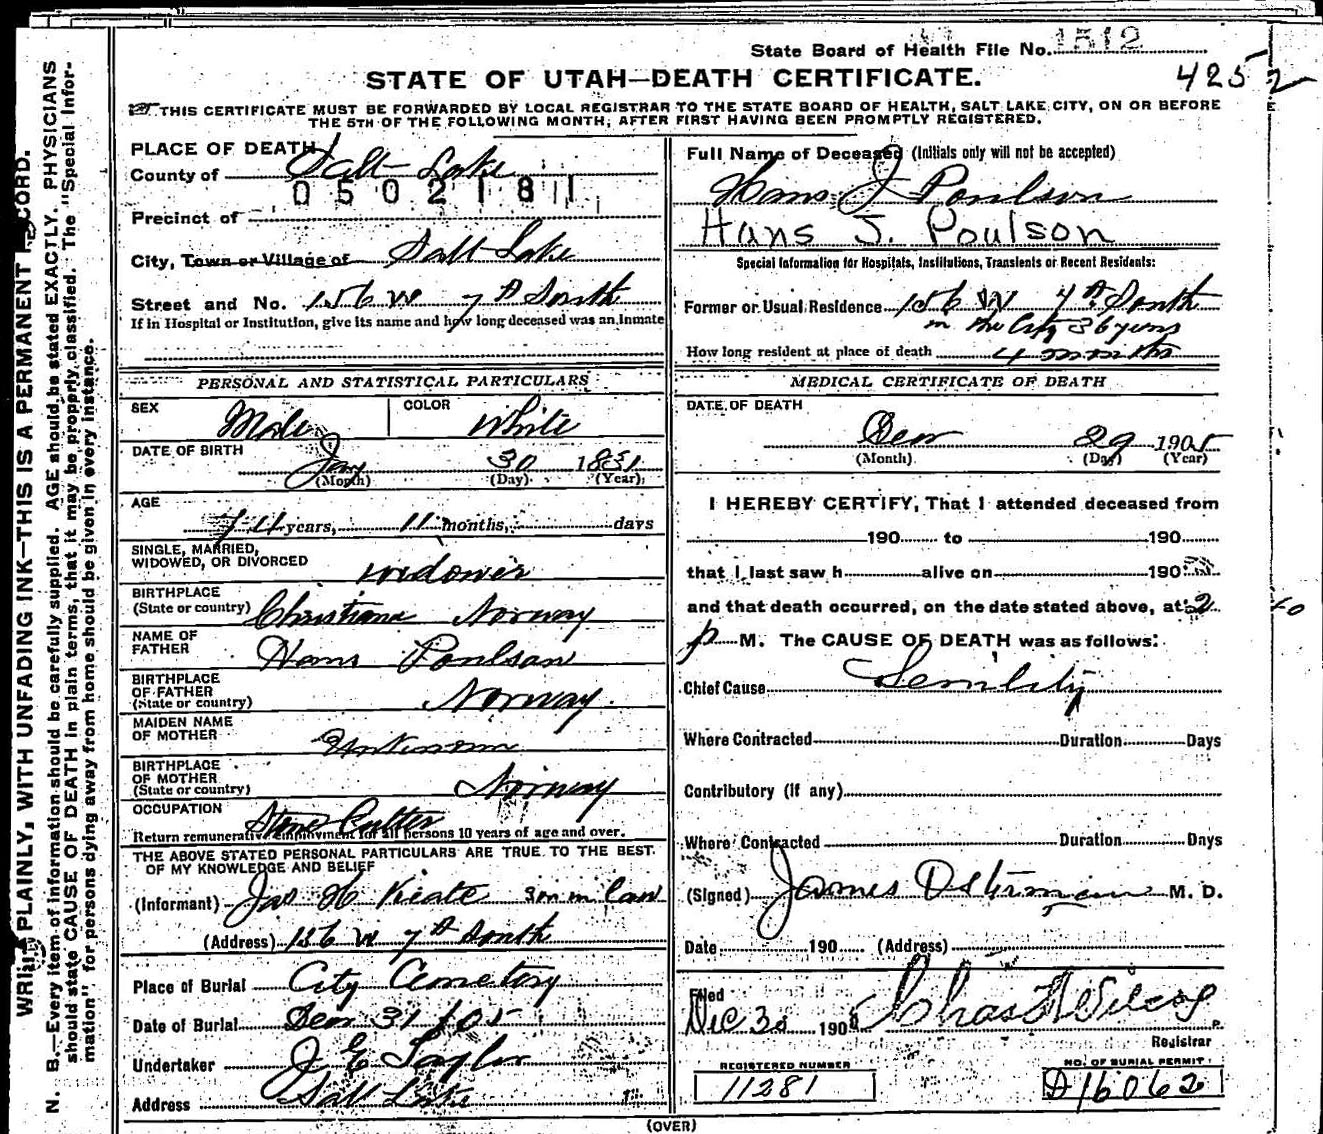 State Board of Health File No. 1512
4252
STATE OF UTAH—DEATH CERTIFICATE.
THIS CERTIFICATE MUST BE FORWARDED BY LOCAL REGISTRAR TO THE STATE BOARD OF HEALTH, SALT LAKE CITY, ON OR BEFORE
THE 5TH OF THE FOLLOWING MONTH, AFTER FIRST HAVING BEEN PROMPTLY REGISTERED.
WRITE PLAINLY, WITH UNFADING INK—THIS IS A PERMANENT RECORD.
N. B.—Every item of information should be carefully supplied. AGE should be stated EXACTLY. PHYSICIANS
should state CAUSE OF DEATH in plain terms, that it may be properly classified. The "Special Infor-
mation" for persons dying away from home should be given in every instance.
PLACE OF DEATH
County of Salt Lake
0502181
Precinct of
City, Town or Village of Salt Lake
Street and No. 156 W 7th South
If in Hospital or Institution, give its name and how long deceased was an Inmate
PERSONAL AND STATISTICAL PARTICULARS
SEX Male COLOR White
DATE OF BIRTH Jan 30 1831
(Month) (Day) (Year)
AGE 74 years, 11 months, days
SINGLE, MARRIED,
WIDOWED, OR DIVORCED widower
BIRTHPLACE
(State or country) Christiana Norway
NAME OF
FATHER Hans Poulson
BIRTHPLACE
OF FATHER
(State or country) Norway
MAIDEN NAME
OF MOTHER Unknown
BIRTHPLACE
OF MOTHER
(State or country) Norway
OCCUPATION Stone Cutter
Return remunerative employment for all persons 10 years of age and over.
THE ABOVE STATED PERSONAL PARTICULARS ARE TRUE TO THE BEST
OF MY KNOWLEDGE AND BELIEF
(Informant) Jas H Keate son in law
(Address) 156 W 7th South
Place of Burial City Cemetery
Date of Burial Dec 31 / 05
Undertaker J E Taylor
Address Salt Lake
Full Name of Deceased (Initials only will not be accepted)
Hans J Poulson
Hans J. Poulson
Special Information for Hospitals, Institutions, Transients or Recent Residents:
Former or Usual Residence 156 W 7th South
in the City 36 years
How long resident at place of death 4 months
MEDICAL CERTIFICATE OF DEATH
DATE OF DEATH
Dec 29 1905
(Month) (Day) (Year)
I HEREBY CERTIFY, That I attended deceased from
190 to 190
that I last saw h alive on 190
and that death occurred, on the date stated above, at 2
p M. The CAUSE OF DEATH was as follows:
Chief Cause Senility
Where Contracted Duration Days
Contributory (if any)
Where Contracted Duration Days
(Signed) James Osterman M. D.
Date 190 (Address)
Filed
Dec 30 190 Chas Wilcox
Registrar
REGISTERED NUMBER
11281
NO. OF BURIAL PERMIT
A16062
(OVER)